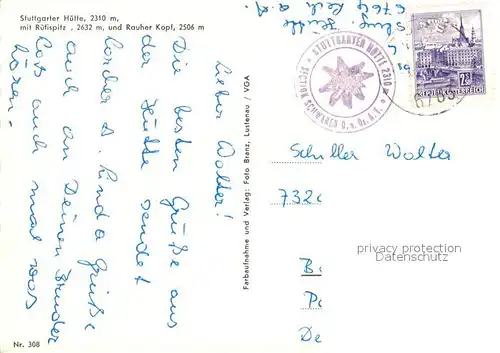 Stuttgarter Hütte, 2310 m,
mit Rüfispitz, 2632 m, und Rauher Kopf, 2506 m
Lieber Walter!
Die besten Grüße aus
der Hütte sendet
Lorcher S. Linda Grüße
auch an Deinen Bruder
Lass auch mal was
hören.
Nr. 308
Farbaufnahme und Verlag: Foto Branz, Lustenau / VGA
Hütte
6764 Lech a. A.
STUTTGARTER HÜTTE 2310 m
SECTION SCHWABEN D. u. Oe. A. V.
2S
REPUBLIK ÖSTERREICH
Schiller Walter
732
B
P
De
privacy protection
Datenschutz